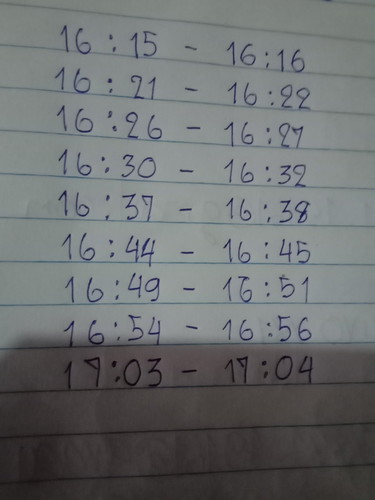 16:15 - 16:16
16:21 - 16:22
16:26 - 16:27
16:30 - 16:32
16:37 - 16:38
16:44 - 16:45
16:49 - 16:51
16:54 - 16:56
17:03 - 17:04